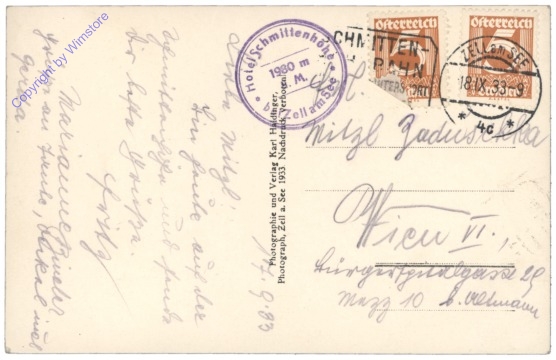 Copyright by Wimstore
Hotel Schmittenhöhe
1980 m
ü. M.
b. Zell am See
SCHMITTEN-
BAHN
WINTERSPORT
Österreich
5
Österreich
5
ZELL AM SEE
18.IX.33
* 4c *
17.9.33
Liebe Mitzl!
Bin heute auf der
Schmittenhöhe und sende
Dir beste Grüße.
Fritz
Marianne
Photographie und Verlag Karl Haidinger,
Photograph, Zell a. See 1933 Nachdruck verboten.
Mitzl Zaduschka
Wien VI.,
Bürgerspitalgasse 29
Mezz 10 b. Altmann